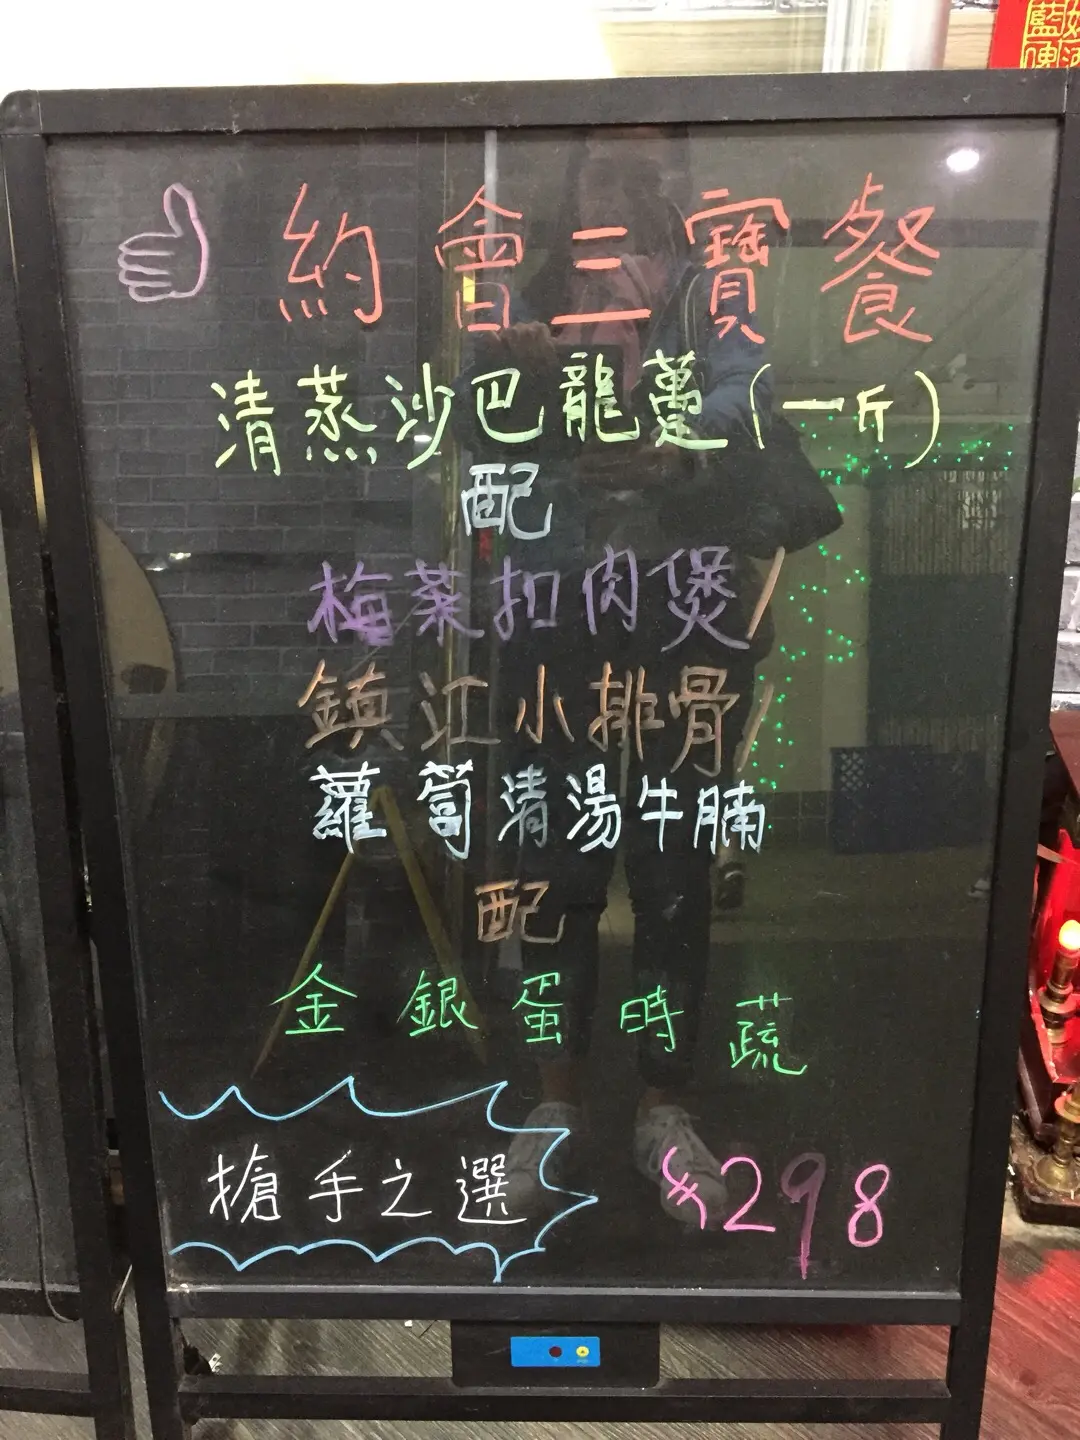 約會三寶餐
清蒸沙巴龍躉(一斤)
配
梅菜扣肉煲/
鎮江小排骨/
蘿蔔清湯牛腩
配
金銀蛋時蔬
搶手之選
$298